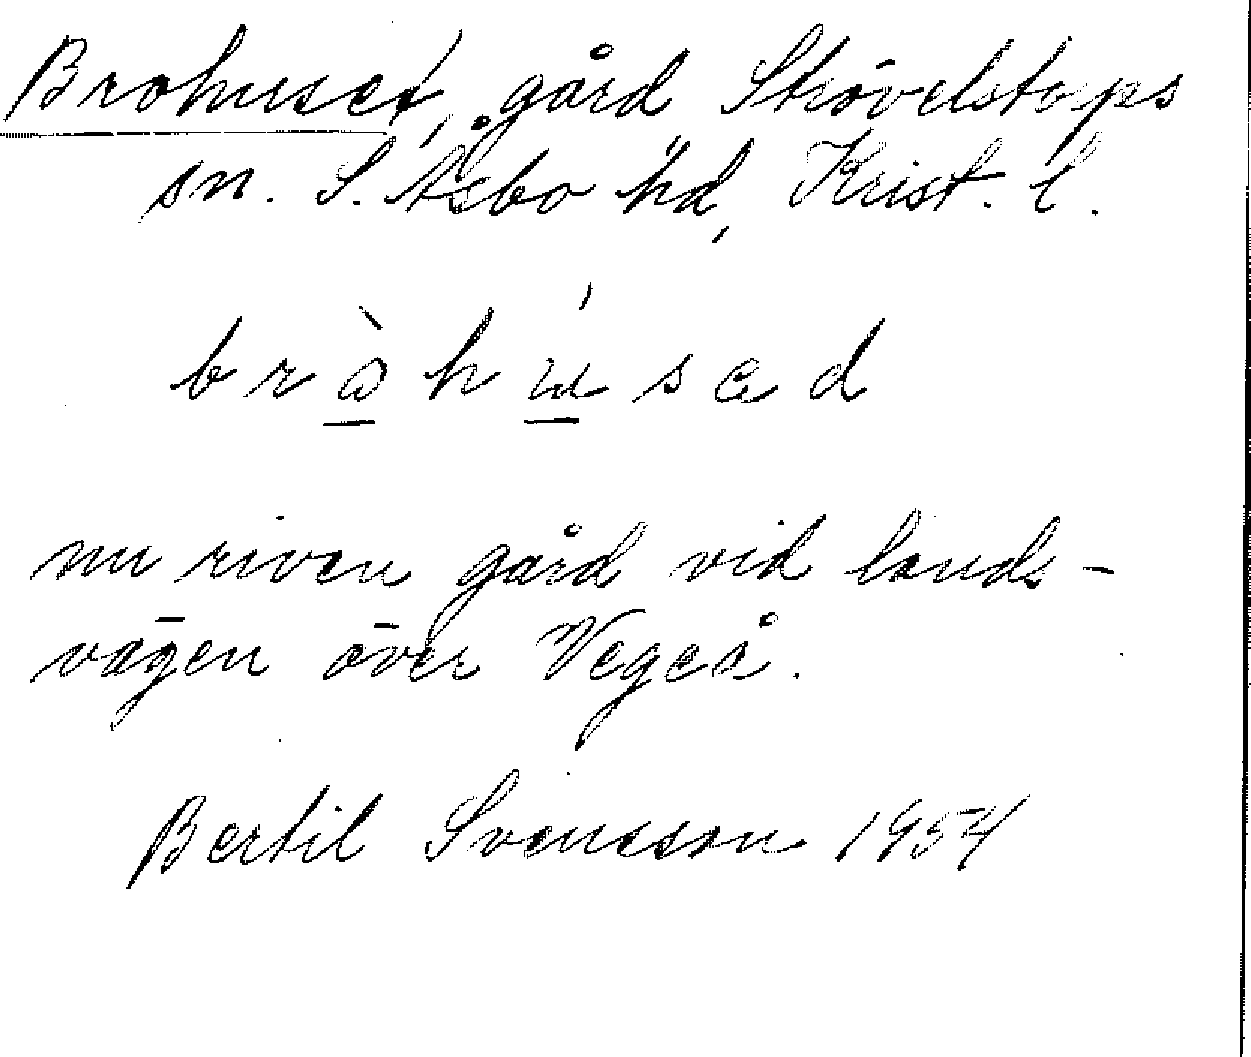 Brohuset, gård Strövelstorps
sn. S. Åsbo hd, Krist. l.
bròhúsed
nu riven gård vid lands-
vägen över Vegeå.
Bertil Svensson 1954